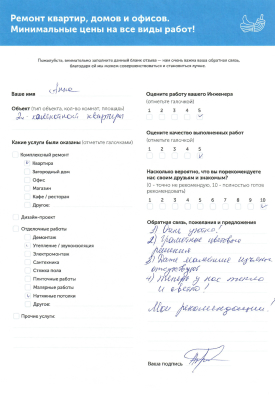 Ремонт квартир, домов и офисов.
Минимальные цены на все виды работ!
Пожалуйста, внимательно заполните данный бланк отзыва — нам очень важна ваша обратная связь.
Благодаря ей мы можем совершенствоваться и становиться лучше
Ваше имя Анна
Объект (тип объекта, кол-во комнат, площадь)
2х-комнатная квартира
Какие услуги были оказаны (отметьте галочками)
Комплексный ремонт:
Квартира
Загородный дом
Офис
Магазин
Кафе / ресторан
Другое:
Дизайн-проект
Отделочные работы
Демонтаж
Утепление / звукоизоляция
Электромонтаж
Сантехника
Стяжка пола
Плиточные работы
Малярные работы
Натяжные потолки
Другое:
Прочие услуги:
Оцените работу вашего Инженера
(отметьте галочкой)
1 2 3 4 5
Оцените качество выполненных работ
(отметьте галочкой)
1 2 3 4 5
Насколько вероятно, что вы порекомендуете
нас своим друзьям и знакомым?
(0 - точно не рекомендую, 10 - полностью готов
рекомендовать)
1 2 3 4 5 6 7 8 9 10
Обратная связь, пожелания и предложения
1)
2) Грамотное цветовое
решение
3) Даже маленькие
4) Теперь у нас тепло
и светло!
Мои рекомендации!
Ваша подпись